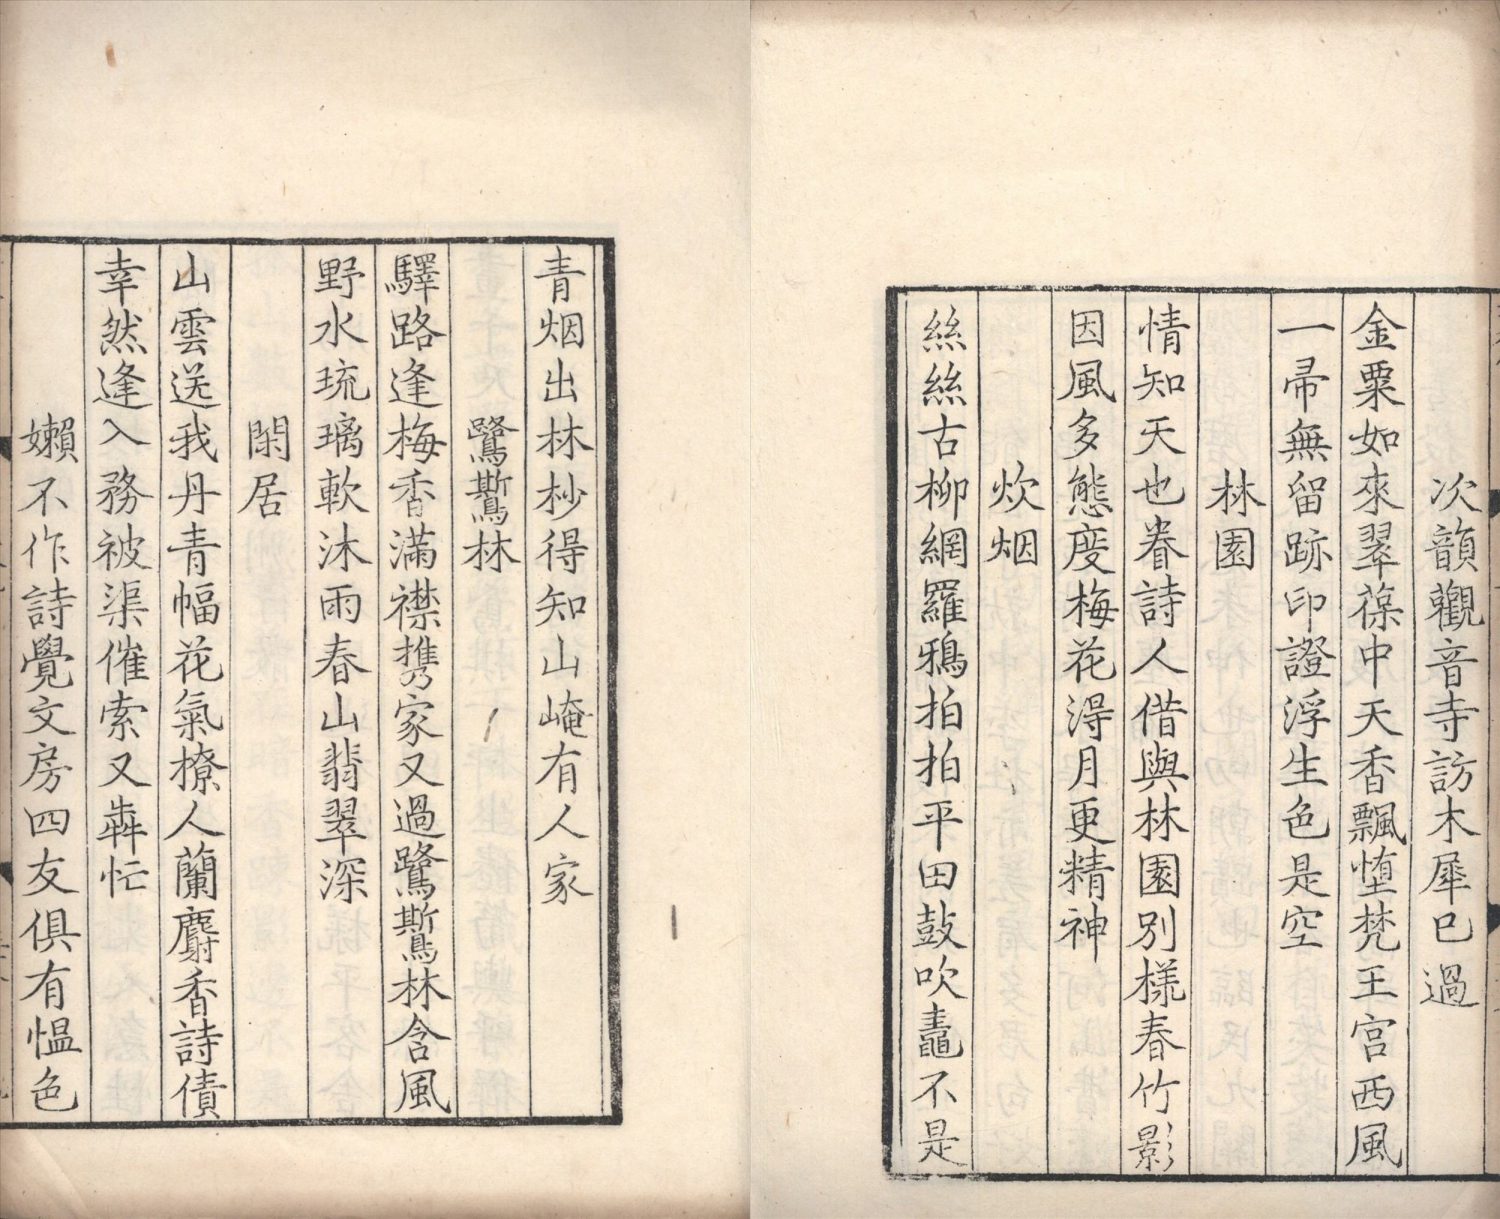 次韻觀音寺訪木犀已過
金粟如來翠葆中天香飄堕梵王宮西風
一帚無留跡印證浮生色是空
林園
情知天也眷詩人借與林園別樣春竹影
因風多態度梅花淂月更精神
炊烟
絲絲古柳網羅鴉拍拍平田鼓吹鼃不是
青烟出林杪得知山崦有人家
鷺鷥林
驛路逢梅香滿襟携家又過鷺鷥林含風
野水琉璃軟沐雨春山翡翠深
閑居
山雲送我丹青幅花氣撩人蘭麝香詩債
幸然逢入務被渠催索又犇忙
嬾不作詩覺文房四友俱有愠色